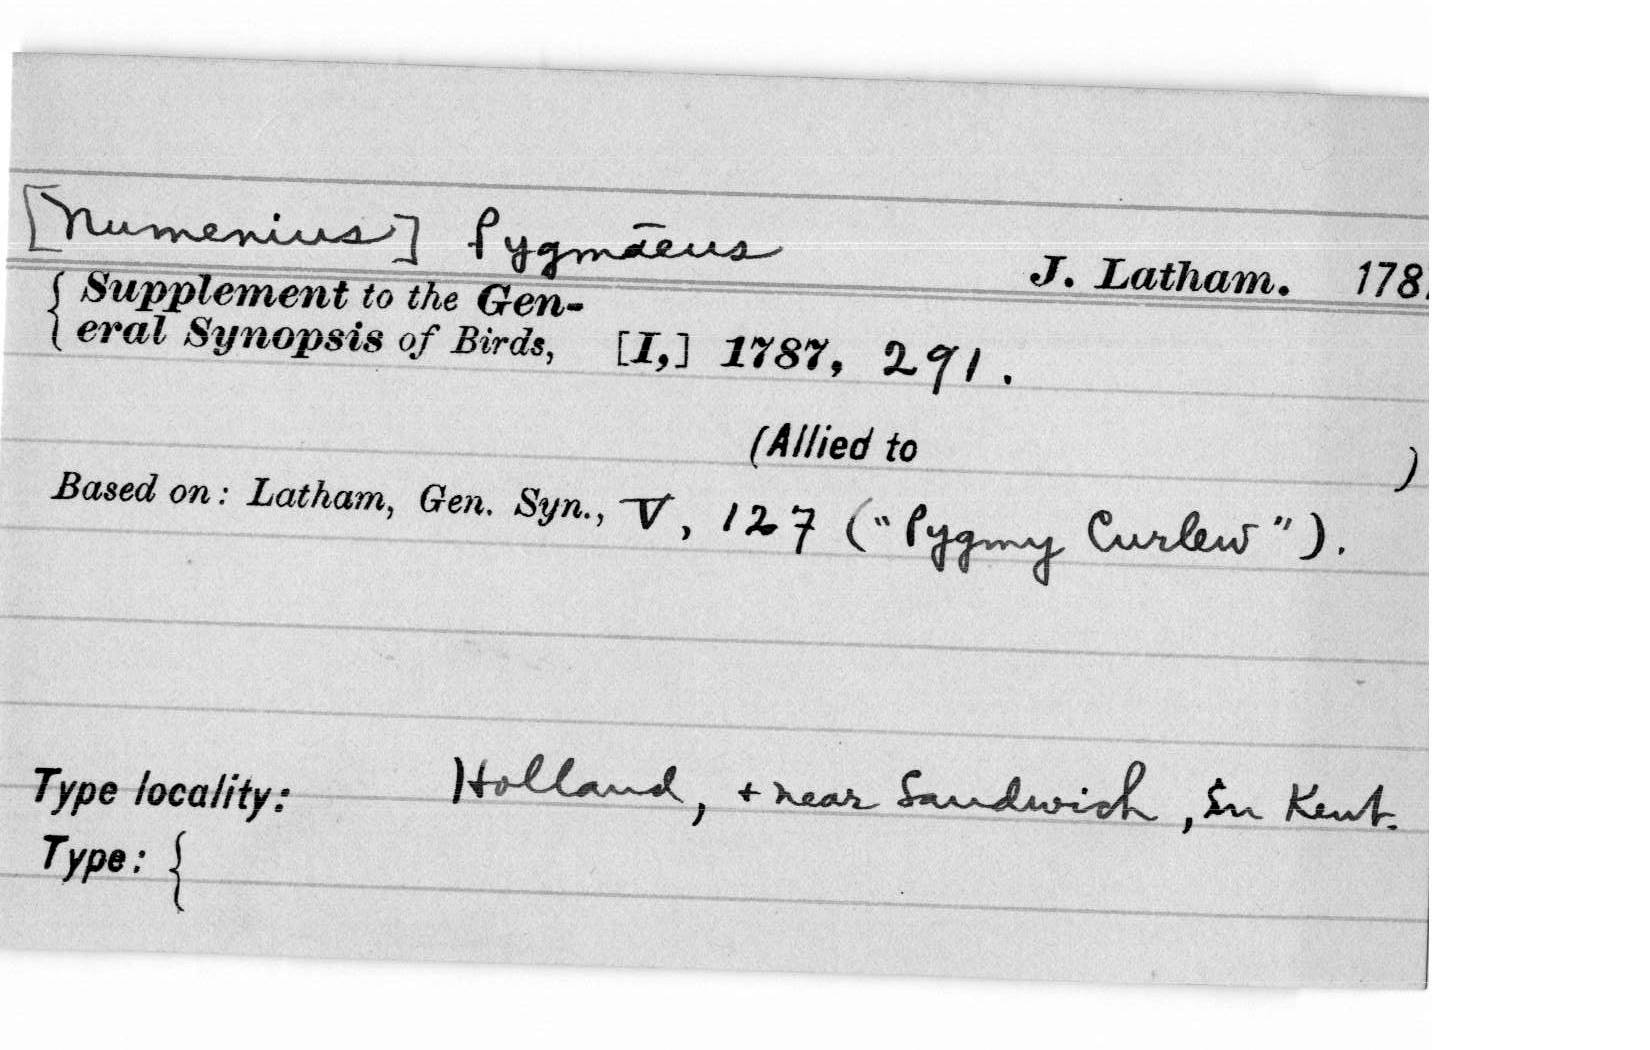 [Numenius] Pygmāeus
J. Latham. 178
{ Supplement to the Gen-
eral Synopsis of Birds, [I,] 1787, 291.
(Allied to )
Based on: Latham, Gen. Syn., V, 127 ("Pygmy Curlew").
Type locality: Holland, + near Sandwich, in Kent.
Type: {